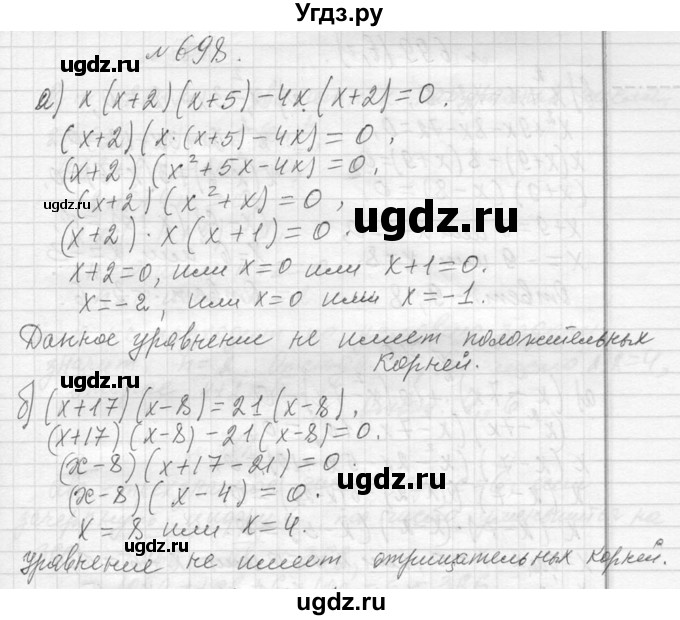 Угдз.ру
№698.
ugdz.ru
а) x(x+2)(x+5)-4x(x+2)=0.
(x+2)(x·(x+5)-4x)=0,
(x+2)(x²+5x-4x)=0,
ugdz.ru
(x+2)(x²+x)=0,
ugdz.ru
(x+2)·x(x+1)=0.
x+2=0, или x=0 или x+1=0.
x=-2, или x=0 или x=-1.
Данное уравнение не имеет положительных
корней.
ugdz.ru
б) (x+17)(x-8)=21(x-8),
(x+17)(x-8)-21(x-8)=0.
(x-8)(x+17-21)=0.
ugdz.ru
(x-8)(x-4)=0.
x=8 или x=4.
уравнение не имеет отрицательных корней.
ugdz.ru
ugdz.ru